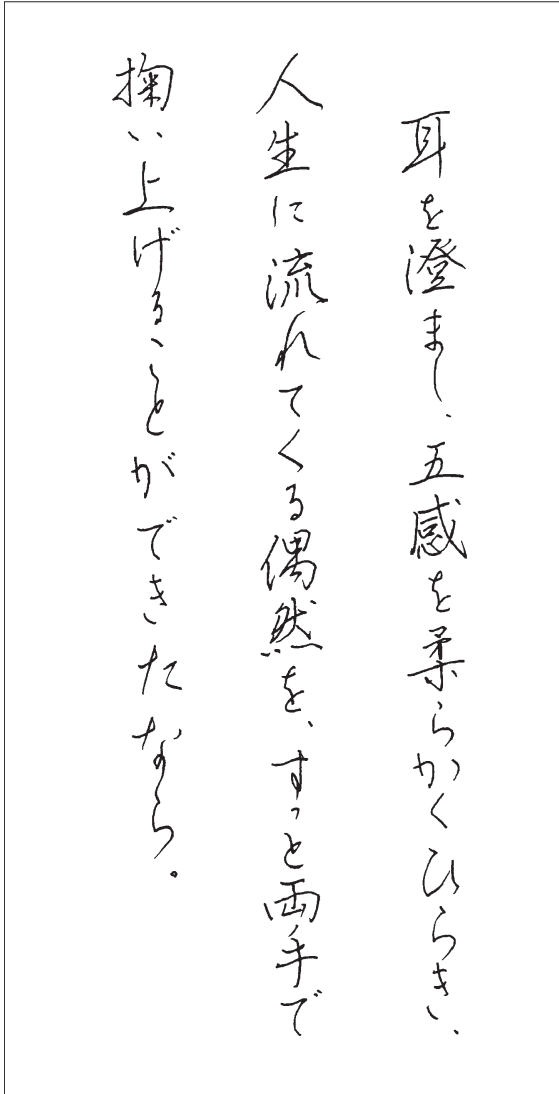 耳を澄まし、五感を柔らかくひらき、
人生に流れてくる偶然を、すっと両手で
掬い上げることができたなら。